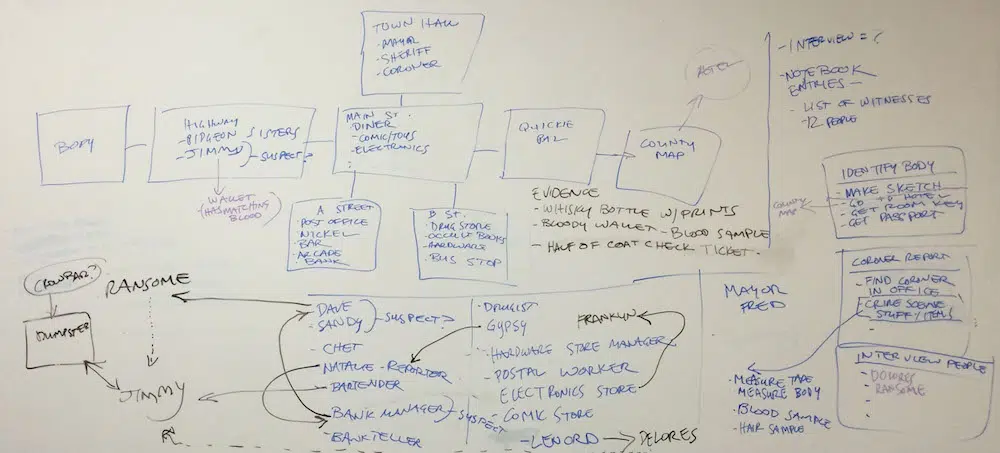 TOWN HALL
- MAYOR
- SHERIFF
- CORONER
BODY
HIGHWAY
- PIDGEON SISTERS
- JIMMY
SUSPECT?
WALLET
(HAS MATCHING
BLOOD)
MAIN ST.
- DINER
- COMIC/TOYS
- ELECTRONICS
QUICKIE
PAL
COUNTY
MAP
HOTEL
A STREET
- POST OFFICE
- NICKEL
- BAR
- ARCADE
- BANK
B ST.
- DRUG STORE
- OCCULT BOOKS
- HARDWARE
- BUS STOP
EVIDENCE
- WHISKY BOTTLE W/PRINTS
- BLOODY WALLET - BLOOD SAMPLE
- HALF OF COAT CHECK TICKET.
- INTERVIEW = ?
- NOTEBOOK
ENTRIES -
- LIST OF WITNESSES
- 12 PEOPLE
IDENTIFY BODY
MAKE SKETCH
- GO TO HOTEL
- GET ROOM KEY
- GET PASSPORT
COUNTY
MAP
CORONER REPORT
- FIND CORONER
IN OFFICE
- CRIME SCENE
STUFF/ITEMS
INTERVIEW PEOPLE
- DOLORES
- RANSOME
CROWBAR?
DUMPSTER
RANSOME
JIMMY
- DAVE
- SANDY
SUSPECT?
- CHET
- NATALIE - REPORTER
- BARTENDER
- BANK MANAGER
SUSPECT
- BANK TELLER
- DRUGIST
- GYPSY
FRANKLIN
- HARDWARE STORE MANAGER
- POSTAL WORKER
ELECTRONICS STORE
- COMIC STORE
- LENORD
DELORES
MAYOR
FRED
- MEASURE TAPE
MEASURE BODY
- BLOOD SAMPLE
- HAIR SAMPLE